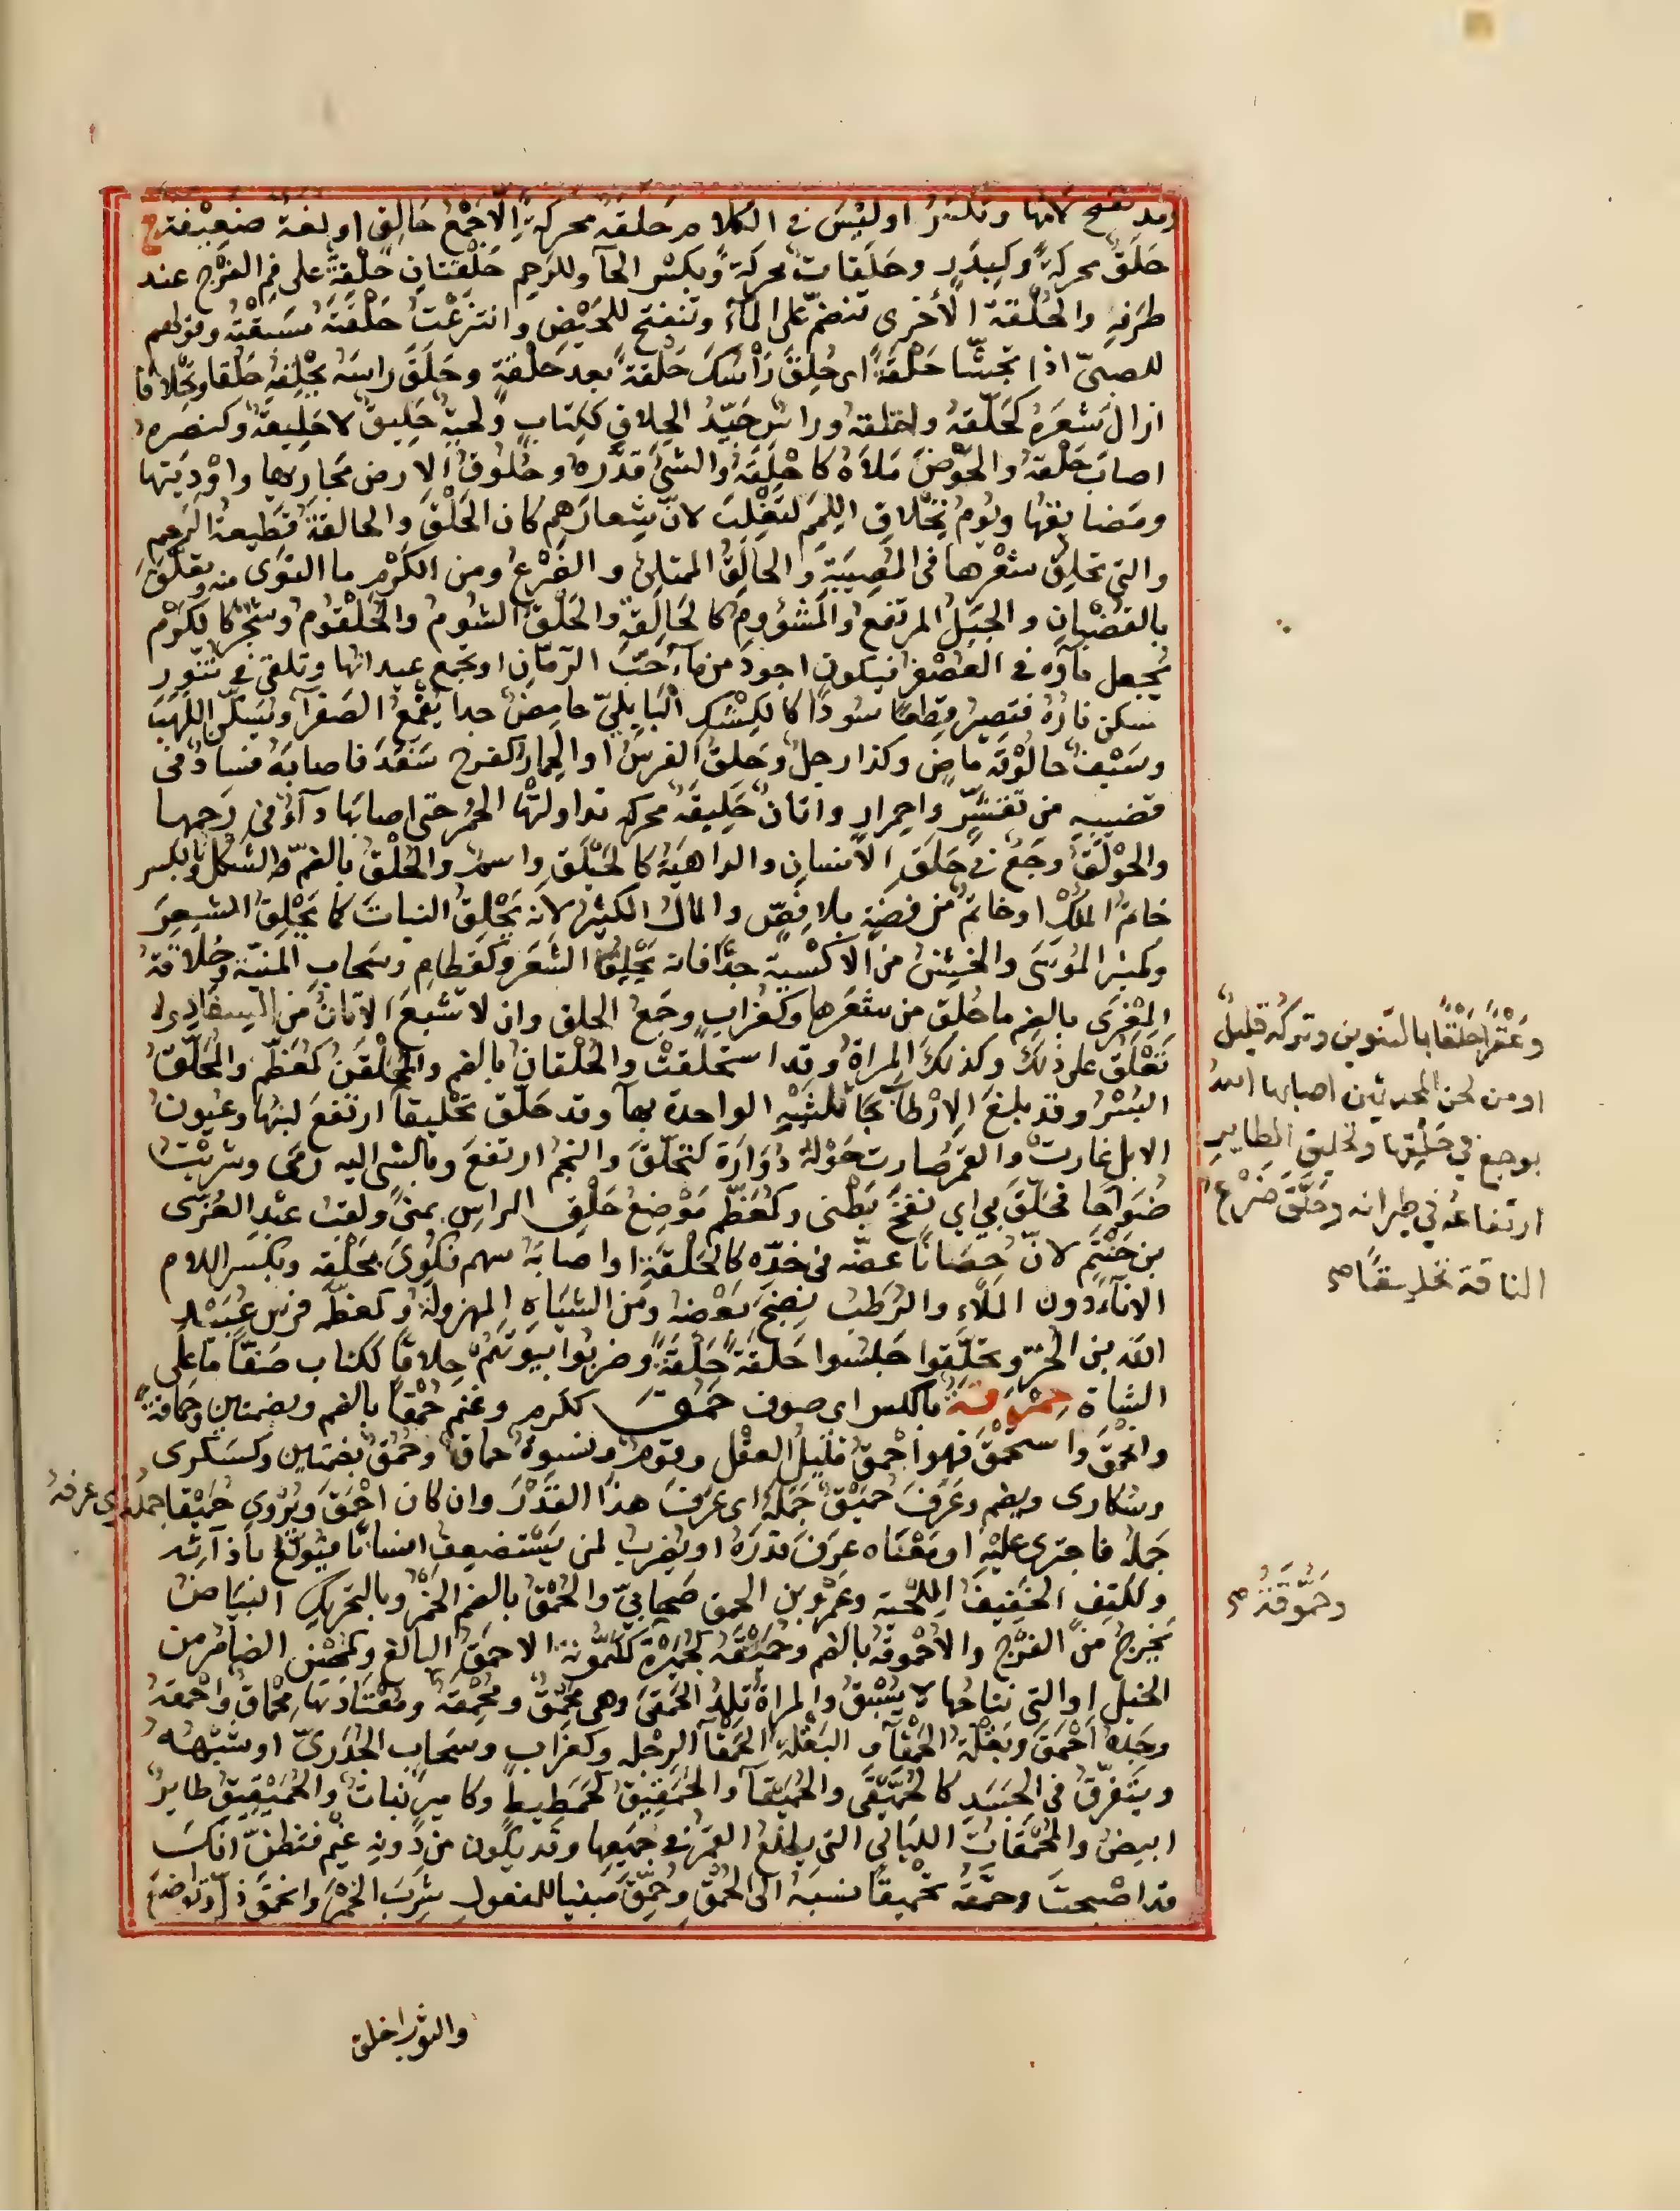 وقد تفتح لامها وتكسر او ليس في الكلام حلقة محركة الا جمع حالق او لغة ضعيفة ج
حلق محركة وكبدر وحلقات محركة وبكسر الحآ وللرحم حلقتان حلقة على فم الفرج عند
طرفه والحلقة الأخرى تنضم على المآء وتنفتح للحيض وانتزعت حلقته سبقته وقولهم
للصبي اذا تجشا حلقة اى حلق رأسك حلقة بعد حلقة وحلق راسه يحلقه حلقا وتحلاقا
ازال شعره كحلقه واحتلقه وراس جيد الحلاق ككتاب ولحية حليق لا حليقة وكنصره
اصاب حلقه والحوض ملأه كاحلقه والشئ قدره وحلوق الارض مجاريها واوديتها
ومضايقها ويوم تحلاق اللمم لتغلب لان شعارهم كان الحلق والحالقة قطيعة الرحم
والتي تحلق شعرها في المصيبة والحالق الممتلئ والضرع ومن الكرم ما التوى منه وتعلق
بالقضبان والجبل المرتفع والمشؤوم كالحالقة والحلق الشوم والحلقوم وشجر كالكرم
يجعل مآؤه في العصفر فيكون اجود من مآء حب الرمان او يجمع عيدانها وتلقى في تنور
سكن ناره فتصير قطعا سودا كالكشك البابلي حامض جدا يقمع الصفرآ ويسكن اللهب
وسيف حالوقة ماض وكذا رجل وحلق الفرس او الحمار كفرح سفد فاصابه فساد في
قضيبه من تقشر واحمرار واتان حلقية محركه تداولتها الحمر حتى اصابها دآء في رحمها
والحولق وجع في حلق الانسان والداهية كالحيلق واسم والحلق بالضم الثكل وبالكسر
خاتم الملك او خاتم من فضة بلا فص والمال الكثير لانه يحلق النبات كما يحلق الشعر
وكمنبر الموسى والخشن من الاكسية جدا فانه يحلق الشعر وكقطام وسحاب المنية وحلاقة
المعزى بالضم ما حلق من شعرها وكغراب وجع الحلق وان لا تشبع الاتان من السفاد ولا
تعلق على ذلك وكذلك المراة وقد استحلقت والحلقان بالضم والمحلقن كمعظم والمحلق
البسر وقد بلغ الارطاب ثلثيه الواحدة بهآ وقد حلق تحليقا ارتفع لبنها وعيون
الابل غارت والقمر صارت حوله دوارة كتحلق والنجم ارتفع وبالشئ اليه رمى وشربت
ضواحا فحلق بي اي نفخ بطنى وكمعظم موضع حلق الراس بمنى ولقب عبد العزى
بن حنتم لان حصانا عضه فى خده كالحلقة او اصابه سهم فكوى بحلقه وبكسر اللام
الاناء دون الملاء والرطب ينضج بعضه ومن الشياه المهزولة وكمعظمه فرس عبيد
الله بن الحر وتحلقوا جلسوا حلقة حلقة وضربوا بيوتهم حلاقا ككتاب صفا ما على
الشاة حمزقة بالكسر اى صوف حمق ككرم وغنم حمقا بالضم وبضمتين وحماقة
وانحمق واستحمق فهو احمق قليل العقل وقوم ونسوة حماق وحمق بضمتين وكسكرى
وسكارى وبضم وعرف حميق جمله اى عرف هذا القدر وان كان احمق ويروى حميقا جمله اى عرفه
جمله فاجترى عليه او معناه عرف قدره او يضرب لمن يستضعف انسانا فيولع باذآئه
وككتف الخفيف اللحية وعمرو بن الحمق صحابي والحمق بالضم الخمر وبالتحريك البياض
يخرج من الفرج والاحموقة بالضم وحميقة كجهينة ككمونة الاحمق البالغ وكمحسن الضامر من
الخيل او التي نتاجها لا يسبق والمراة تلد الحمقى وهي محمق ومحمقة ومعتادتها محماق واحمقه
وجده احمق وبقلة الحمقآء والبقلة الحمقآ الرجلة وكغراب وسحاب الجدرى او شبهه
ويتفرق في الجسد كالحميقى والحميقآ والحمقيق كحمطيط وكامير نبات والحميقيق طاير
ابيض والمحمقات الليالي التي يطلع القمر في جميعها وقد يكون من دونه غيم فتظن انك
قد اصبحت وحمقه تحميقا نسبه الى الحمق وحمق مبنيا للمفعول شرب الخمر وانحمق ذل وتواضع
وعقرا حلقا بالتنوين وتركه قليل
او من لحن المحدثين اصابها الله
بوجع في حلقها وتحليق الطاير
ارتفاعه في طيرانه وحلق ضرع
الناقة تحليقا صح
وحموقة صح
والثوب اخلق